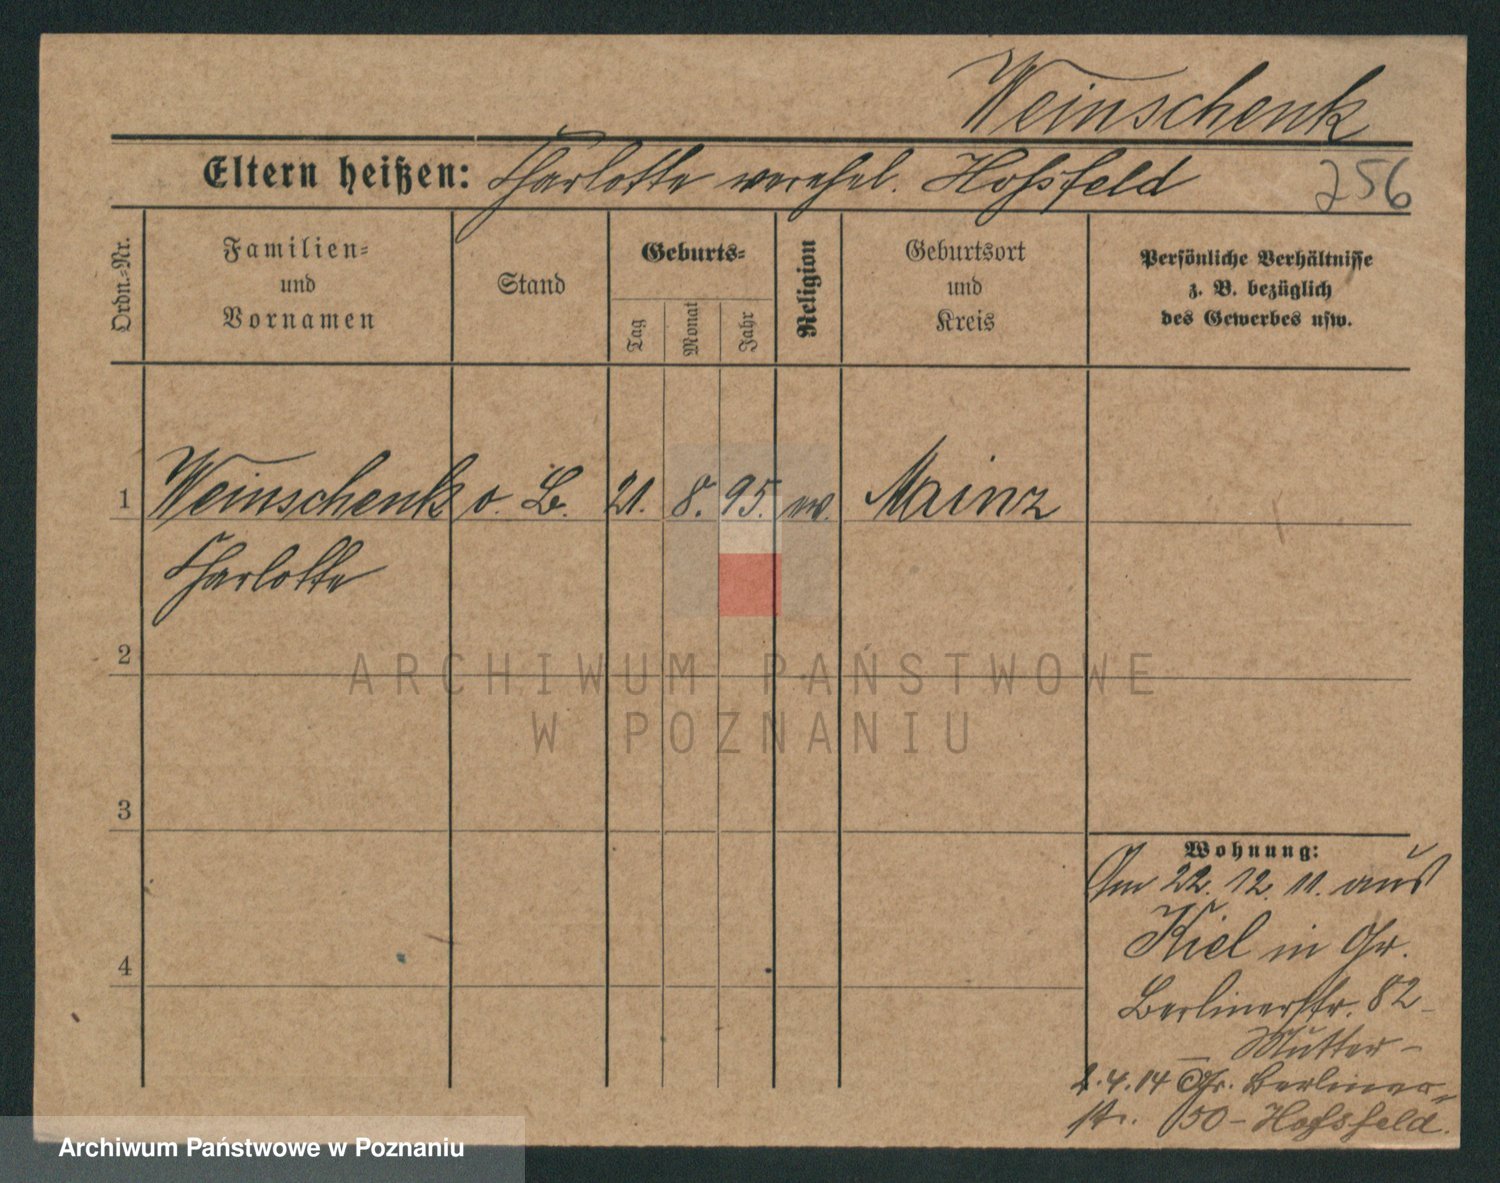 Weinschenk
Eltern heißen: Charlotte verehel. Hossfeld
256
Ordn.=Nr.
Familien=
und
Vornamen
Stand
Geburts=
Tag
Monat
Jahr
Religion
Geburtsort
und
Kreis
Persönliche Verhältnisse
z. B. bezüglich
des Gewerbes usw.
1 Weinschenk o. B. 21. 8. 95. ev. Mainz
Charlotte
2
3
4
Wohnung:
Am 22. 12. 11. aus
Kiel in Gr.
Berlinerstr. 82
– Mutter –
2.4.14 Gr. Berliner=
str. 50 – Hossfeld.
ARCHIWUM PAŃSTWOWE
W POZNANIU
Archiwum Państwowe w Poznaniu